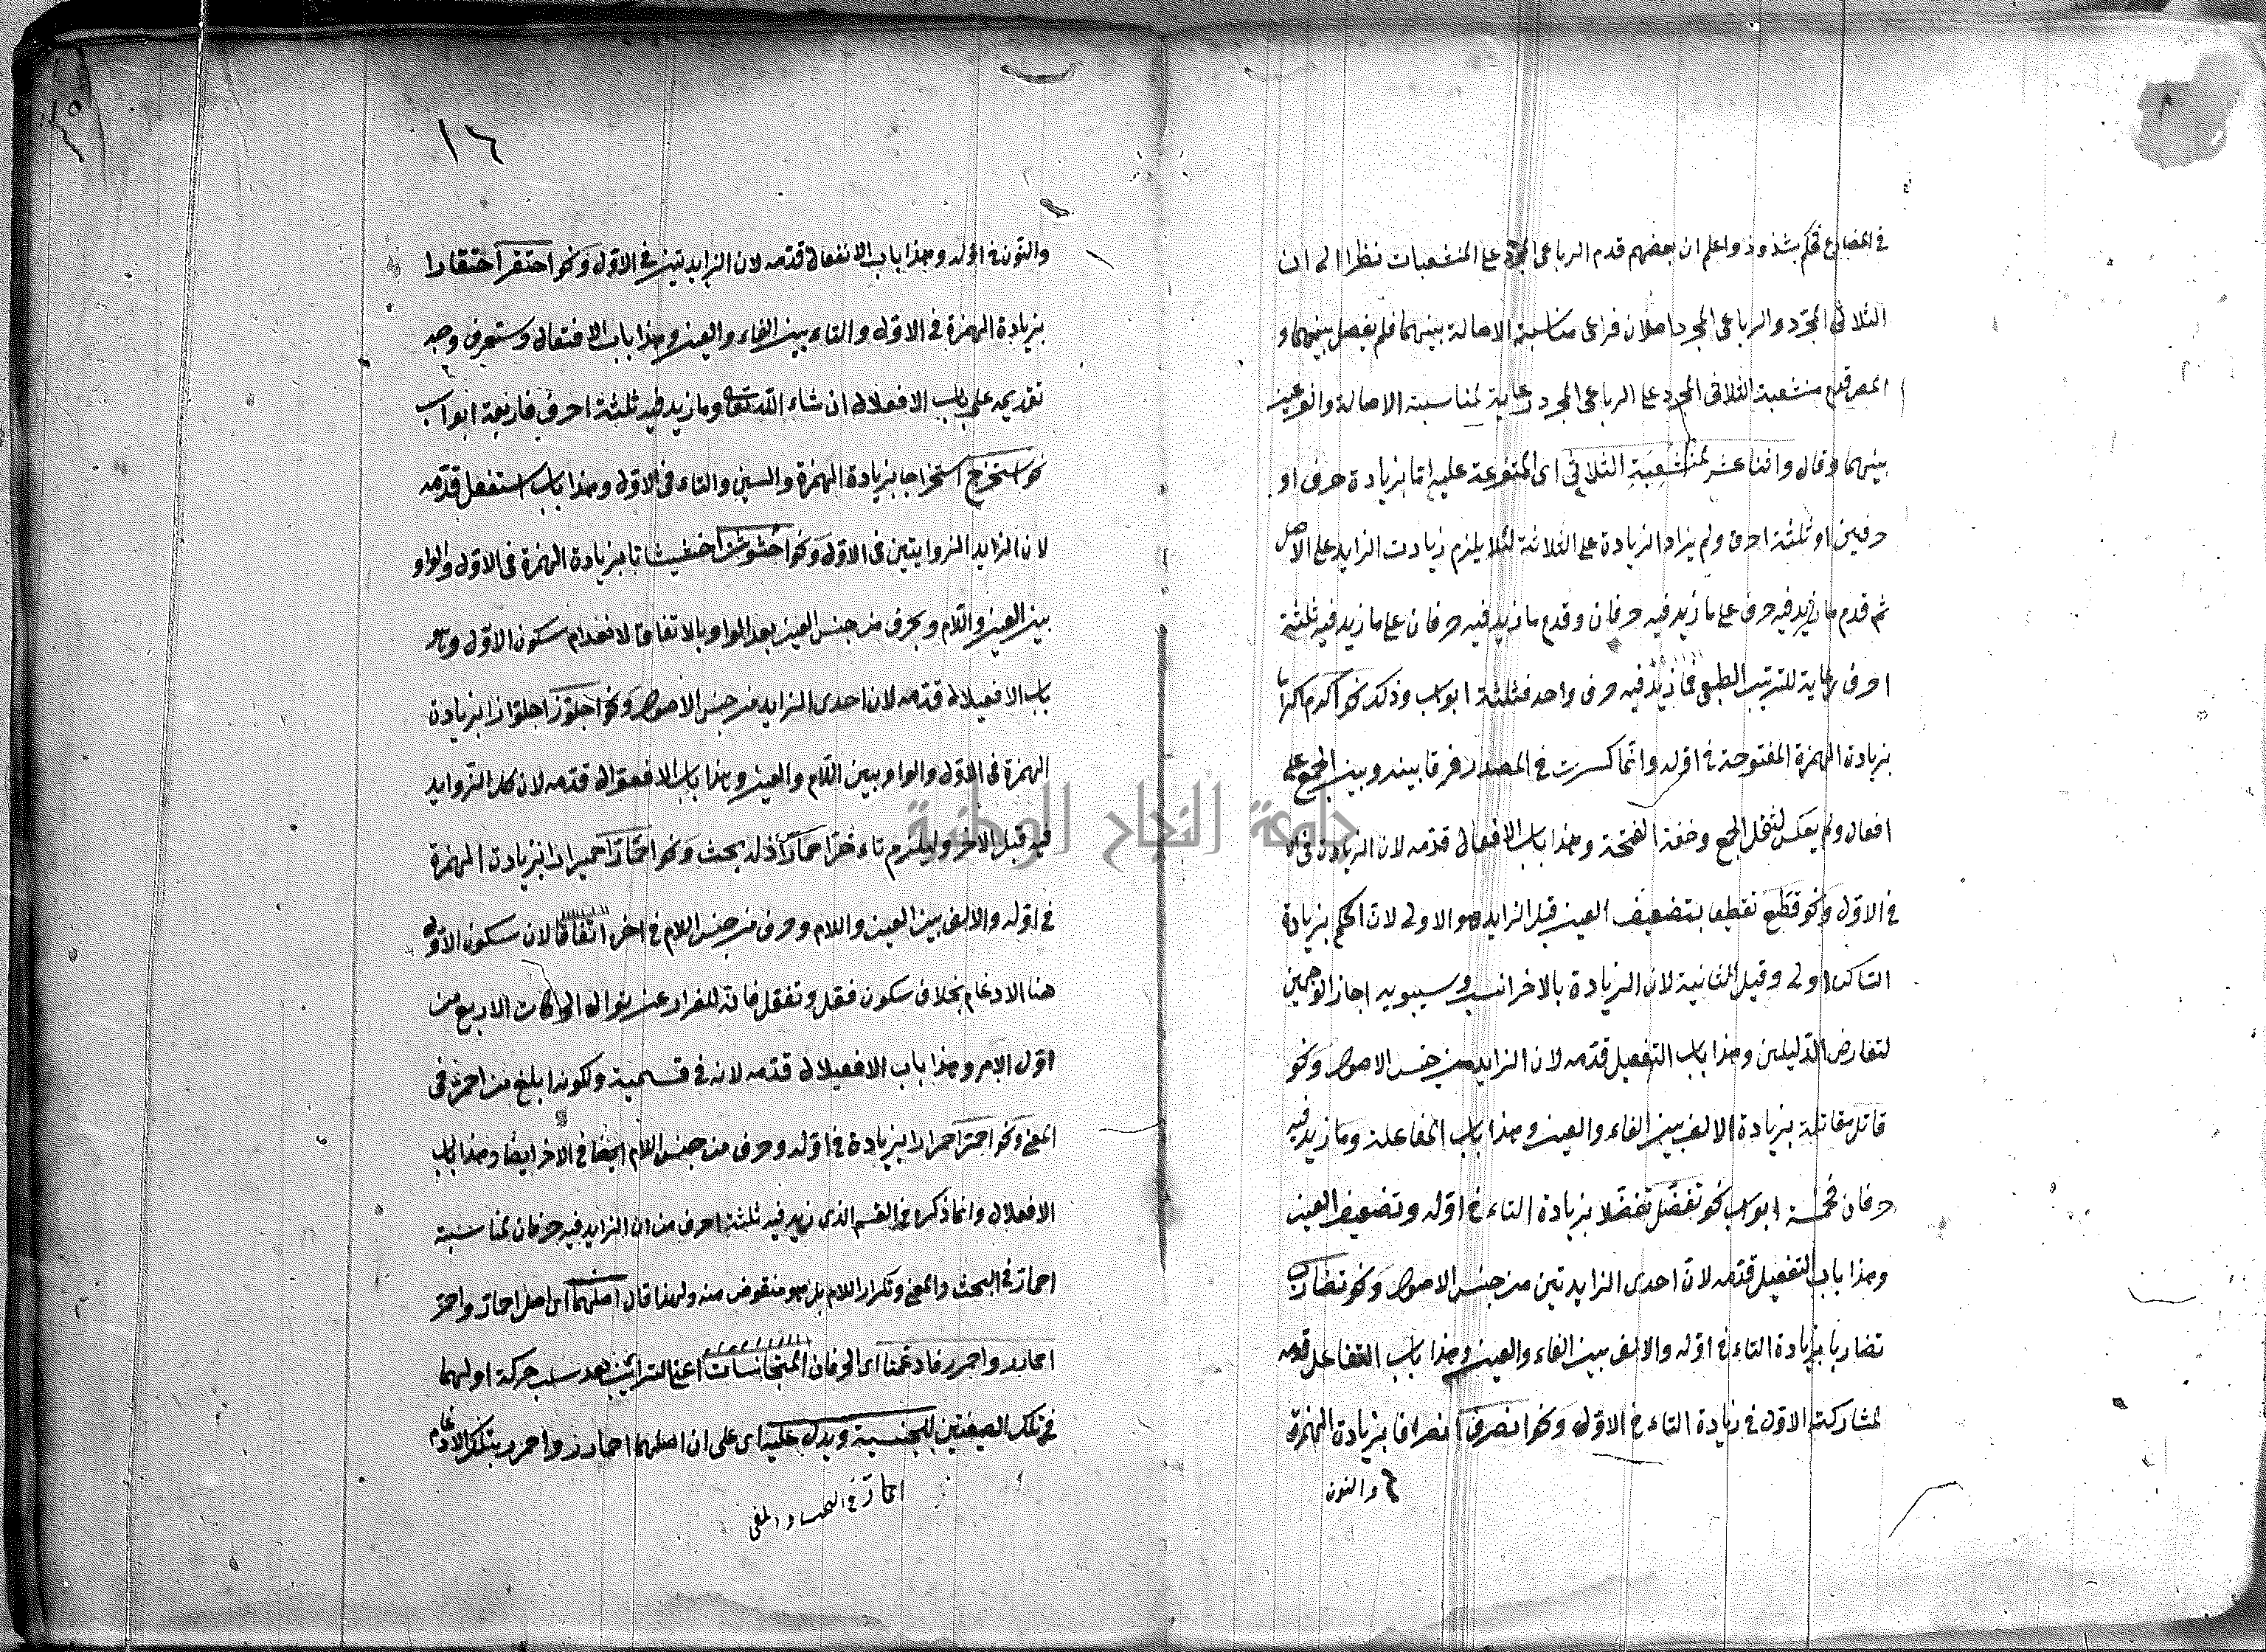 في المضارع فحكم بشذوذ واعلم ان بعضهم قدم الرباعي المجرد على المنشعبات نظرا الى ان
الثلاثي المجرد والرباعي المجرد اصلان فراعى مناسبة الاصالة بينهما فلم يفصل بينهما و
المص قدم منشعبة الثلاثي المجرد على الرباعي المجرد رعاية لمناسبة الاصالة والفرعية
بينهما وقال واثنا عشر لمنشعبة الثلاثي اى المتفرعة عليه اما بزيادة حرف او
حرفين او ثلثة احرف ولم يزاد الزيادة على الثلاثة لئلا يلزم زيادت الزايد على الاصل
ثم قدم ما زيد فيه حرف على ما زيد فيه حرفان وقدم ما زيد فيه حرفان على ما زيد فيه ثلثة
احرف رعاية للترتيب الطبع فما زيد فيه حرف واحد فثلثة ابواب وذلك نحو اكرم اكراما
بزيادة الهمزة المفتوحة في اوله وانما كسرت في المصدر فرقا بينه وبين الجمع على
افعال ولم يعكس لثقل الجمع وخفة الفتحة وهذا باب الافعال قدمه لان الزيادة في الا
في الاول ونحو قطع تقطيعا بتضعيف العين قيل الزايد هو الاولى لان الحكم بزيادة
الساكن اولى وقيل الثانية لان الزيادة بالاخر انسب وسيبويه اجاز الوجهين
لتعارض الدليلين وهذا باب التفعيل قدمه لان الزايد من جنس الاصول ونحو
قاتل مقاتلة بزيادة الالف بين الفاء والعين وهذا باب المفاعلة وما زيد فيه
حرفان فخمسة ابواب نحو تفضل تفضلا بزيادة التاء في اوله وتضعيف العين
وهذا باب التفعيل قدمه لان احدى الزايدتين من جنس الاصول ونحو تضارب
تضاربا بزيادة التاء في اوله والالف بين الفاء والعين وهذا باب التفاعل قدمه
لمشاركته الاول في زيادة التاء في الاول ونحو انصرف انصرافا بزيادة الهمزة
والنون
١٦
والنون في اوله وهذا باب الانفعال قدمه لان الزايدتين في الاول ونحو احتقر احتقارا
بزيادة الهمزة في الاول والتاء بين الفاء والعين وهذا باب الافتعال وستعرف وجه
تقديمه على باب الافعلال ان شاء الله تعالى وما زيد فيه ثلثة احرف فاربعة ابواب
نحو استخرج استخراجا بزيادة الهمزة والسين والتاء في الاول وهذا باب استفعل قدمه
لان الزايد الزوايتين في الاول ونحو اخشوشن اخشيشانا بزيادة الهمزة في الاول والواو
بين العين واللام وبحرف من جنس العين بعد الواو بالاتفاق لانعدام سكون الاول وهو
باب الافعيلال قدمه لان احدى الزايد من جنس الاصول ونحو اجلوز اجلوازا بزيادت
الهمزة في الاول والواو بين اللام والعين وهذا باب الافعوال قدمه لان كل الزوايد
فيه قبل الاخر وليلزم تاء خر احمار اذ له بحث ونحو احمار احميرارا بزيادت الهمزة
في اوله والالف بين العين واللام وحرف من جنس اللام في اخره اتفاقا لان سكون الاول
هنا الادغام بخلاف سكون فعل وتفعل فانه للفرار عن توالى الحركات الاربع من
اول الامر وهذا باب الافعيلال قدمه لانه في قسمية ولكونه ابلغ من احمر في
المعنى ونحو احمر احمرارا بزيادة في اوله وحرف من جنس اللام ايضا في الاخر ايضا وهذا باب
الافعلال وانما ذكره في القسم الذى زيد فيه ثلثة احرف مع ان الزايد فيه حرفان لمناسبة
احمار في البحث والمعنى وتكرار اللام بل هو منقوض منه ولهذا قال اصلهما اى اصل احمار واحمر
احمارر واحمرر فادغمتا اى الحرفان المتجانسات اعنى الرائين بعد سلب حركة اولهما
في تلك الصيغتين للجنسية ويدل عليه اى على ان اصلهما احمارر واحمرر بتلك الادغام
احمار في البحث والمعنى
جامعة النجاح الوطنية